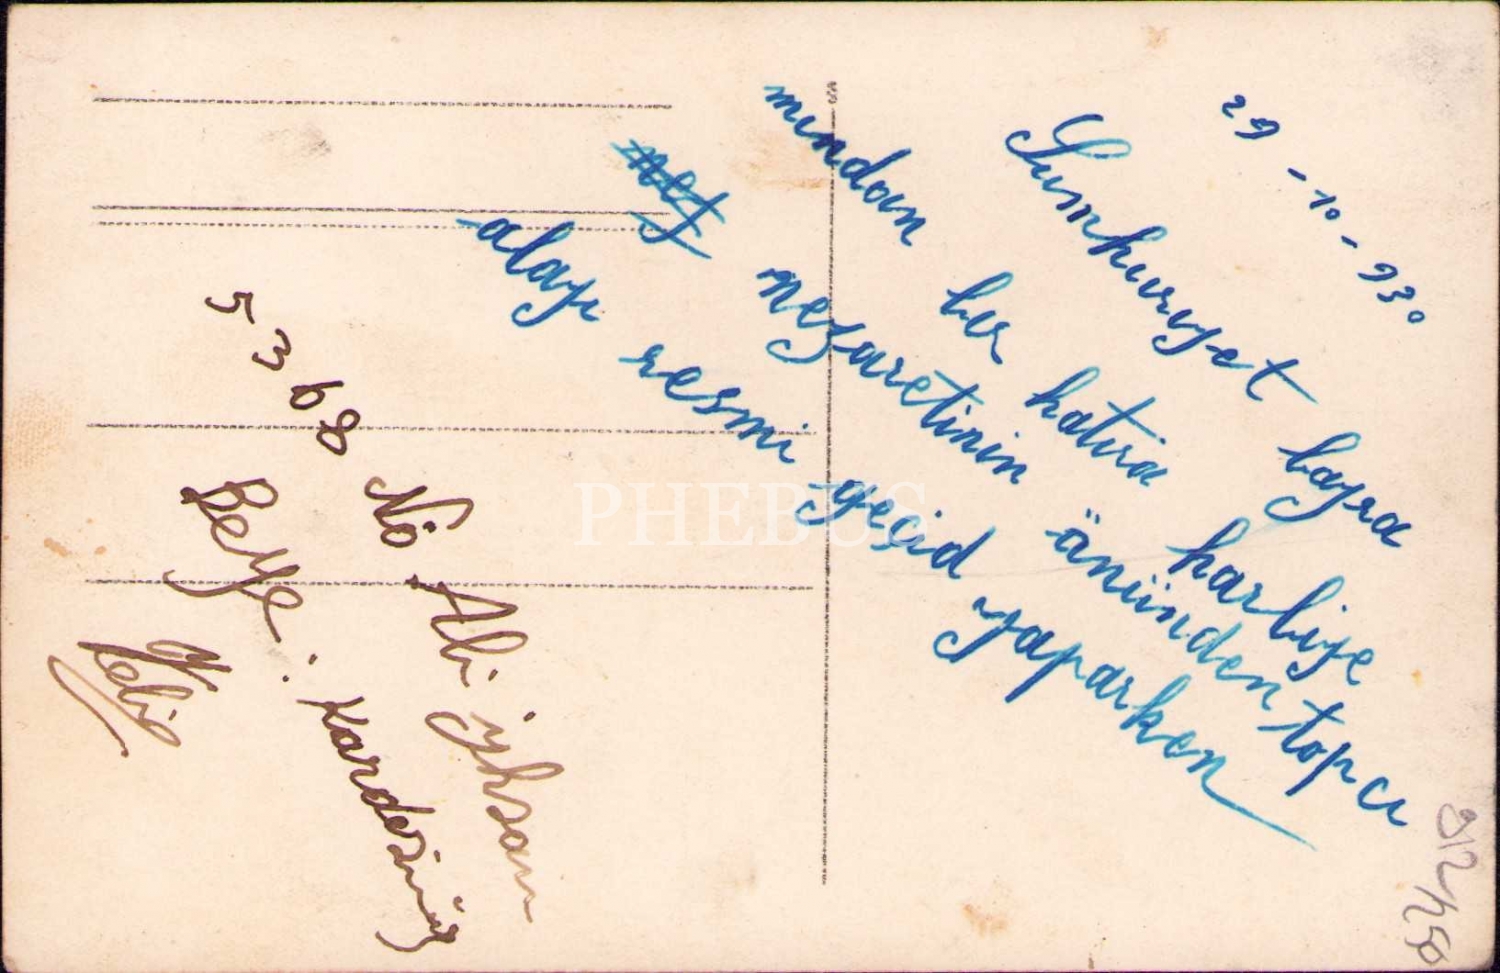 29-10-930
Cumhuriyet bayra
mından bir hatıra harbiye
nezaretinin önünden topcu
alayı resmi geçid yaparken
5368 No Ali ihsan
Beye. kardesiniz
312/1250
PHEBUS